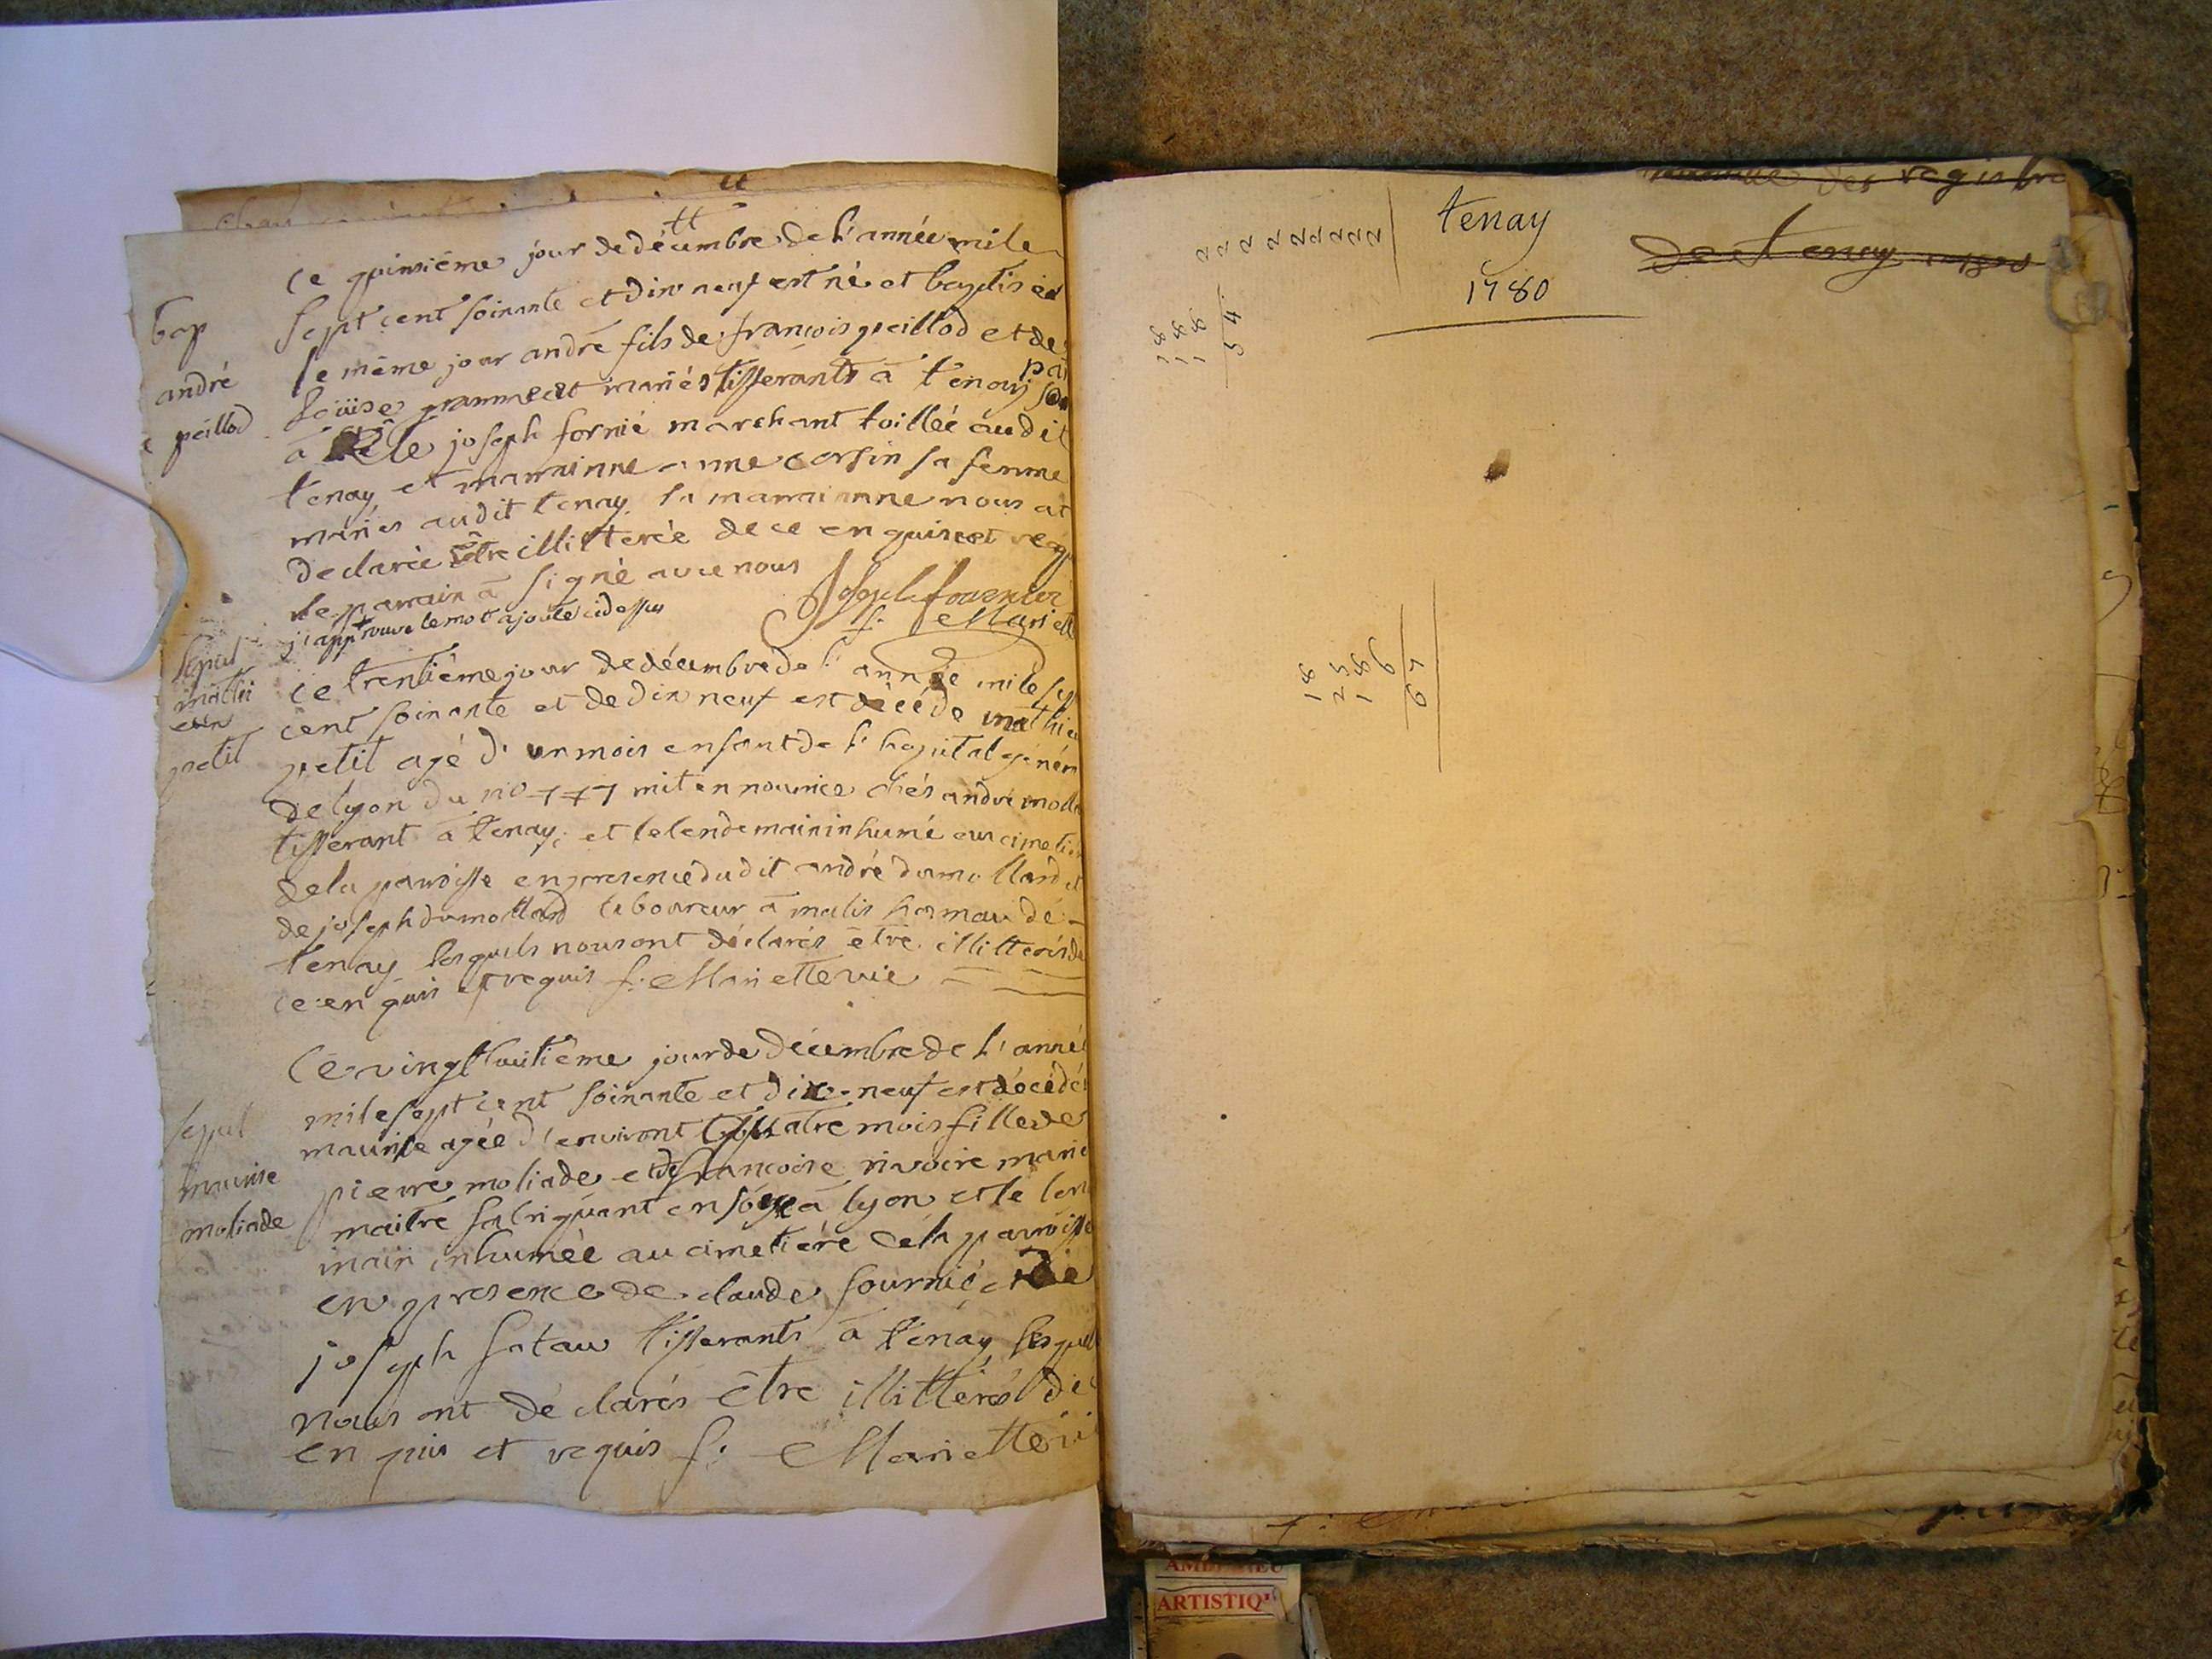 ce quinsième jour de décembre de l'année mile
bap
sept cent soixante et dix neuf est né et baptisé
andré
le même jour andré fils de françois peillod et de
peillod
loüise grammeet mariés tisserants à tenay
à joseph fornié marchant toillée audit
tenay et marrainne anne corsin sa femme
mariés audit tenay la marrainne nous at
declarée être illitterée de ce enquise et
le parrain à signé avec nous
Joseph fournier
j'approuve le mot ajouté cidessus
f. Mariette
sepul
mathieu
petit
ce trentième jour de décembre de l'année mile sept
cent soixante et de dix neuf est décédé mathieu
petit agé d'un mois enfant de l'hopital génér
de lyon du no 777 mit en nourrice chés andré moll
tisserant à tenay, et le lendemain inhumé au cimetière
de la parroisse en presence dudit andré dumollard et
de joseph dumollard laboureur à malis hamau de
tenay lesquels nous ont déclarés être illitterés de
ce enquis et requis f: Mariette vic
ce vingt huitième jour de décembre de l'année
sepul
mile sept cent soixante et dix neuf est décédée
maurise
maurise agée d'environt quatre mois fille de
moliade
pierre moliade et de françoise rivoire mariés
maitre fabriquant en soye à lyon et le len
main inhumée au cimetière de la parroisse
en presence de claude fournié et de
joseph tisserants à tenay lesquels
nous ont déclarés être illittérés de
en quis et requis f: Mariette vic
tenay
1780
des registre
de tenay
AMB
ARTISTIQ